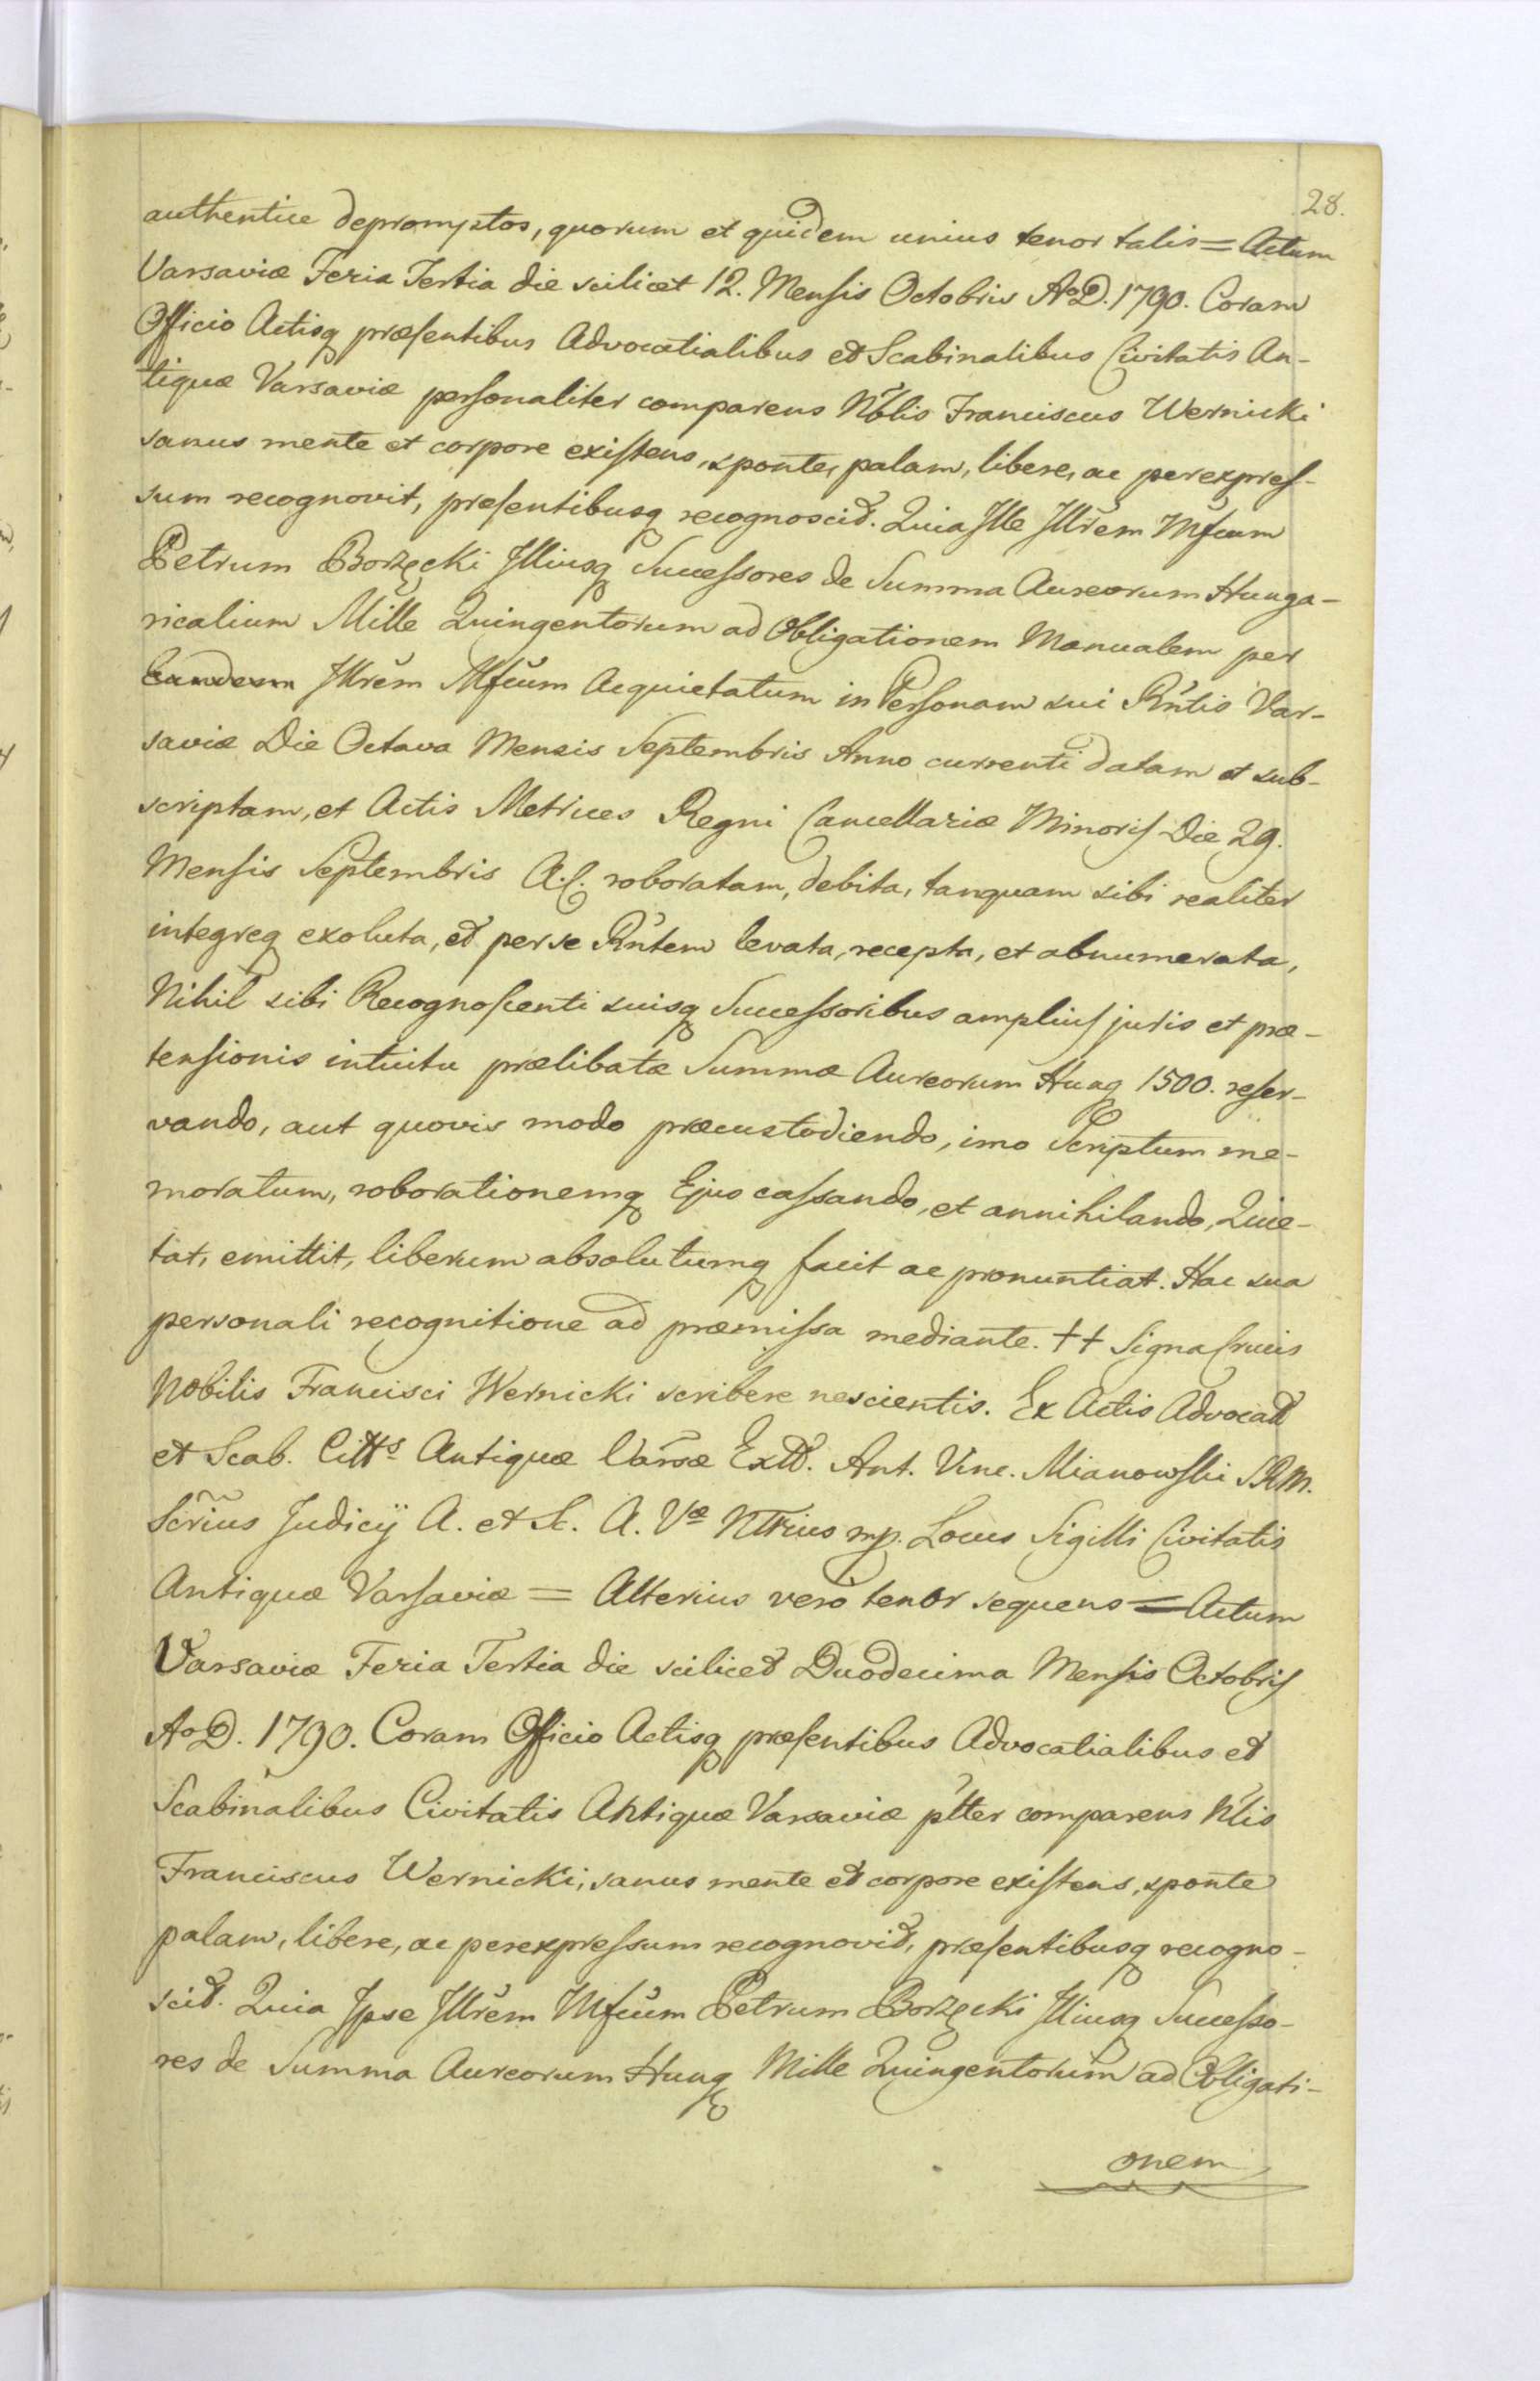 28.
authentice depromptos, quorum et quidem unius tenor talis = Actum
Varsaviæ Feria Tertia die scilicet 12. Mensis Octobris AoD. 1790. Coram
Officio Actisq præsentibus Advocatialibus et Scabinalibus Civitatis An-
tiquæ Varsaviæ personaliter comparens Nblis Franciscus Wernicki
sanus mente et corpore existens, sponte, palam, libere, ac per expres-
sum recognovit, præsentibusq recognoscit. Quia Ille Illrem Mfcum
Petrum Borzęcki Illiusq Successores de Summa Aureorum Hunga-
ricalium Mille Quingentorum ad Obligationem Manualem per
Eundem Illrem Mfcum Acquietatum in Personam sui Rntis Var-
saviæ Die Octava Mensis Septembris Anno currenti datam et sub-
scriptam, et Actis Metrices Regni Cancellariæ Minoris Die 29.
Mensis Septembris A.C. roboratam, debita, tanquam sibi realiter
integreq exoluta, et per se Rntem levata, recepta, et abnumerata,
Nihil sibi Recognoscenti suisq Successoribus amplius juris et præ-
tensionis intuitu prælibatæ Summæ Aureorum Hung 1500. reser-
vando, aut quovis modo præcustodiendo, imo Scriptum me-
moratum, roborationemq Ejus cassando, et annihilando, Quie-
tat, emittit, liberum absolutumq facit ac pronuntiat. Hac sua
personali recognitione ad præmissa mediante. ++ Signa Crucis
Nobilis Francisci Wernicki scribere nescientis. Ex Actis Advocatt
et Scab. Citts Antiquæ Varsæ Extt. Ant. Vinc. Mianowski SRM.
Scrius Judicÿ A. et Sc. A. Væ NTrius mp. Locus Sigilli Civitatis
Antiquæ Varsaviæ = Alterius vero tenor sequens = Actum
Varsaviæ Feria Tertia die scilicet Duodecima Mensis Octobris
AoD. 1790. Coram Officio Actisq præsentibus Advocatialibus et
Scabinalibus Civitatis Antiquæ Varsaviæ plter comparens Nlis
Franciscus Wernicki, sanus mente et corpore existens, sponte
palam, libere, ac per expressum recognovit, præsentibusq recogno-
scit. Quia Ipse Illrem Mfcum Petrum Borzęcki Illiusq Successo-
res de Summa Aureorum Hung Mille Quingentorum ad Obligati-
onem